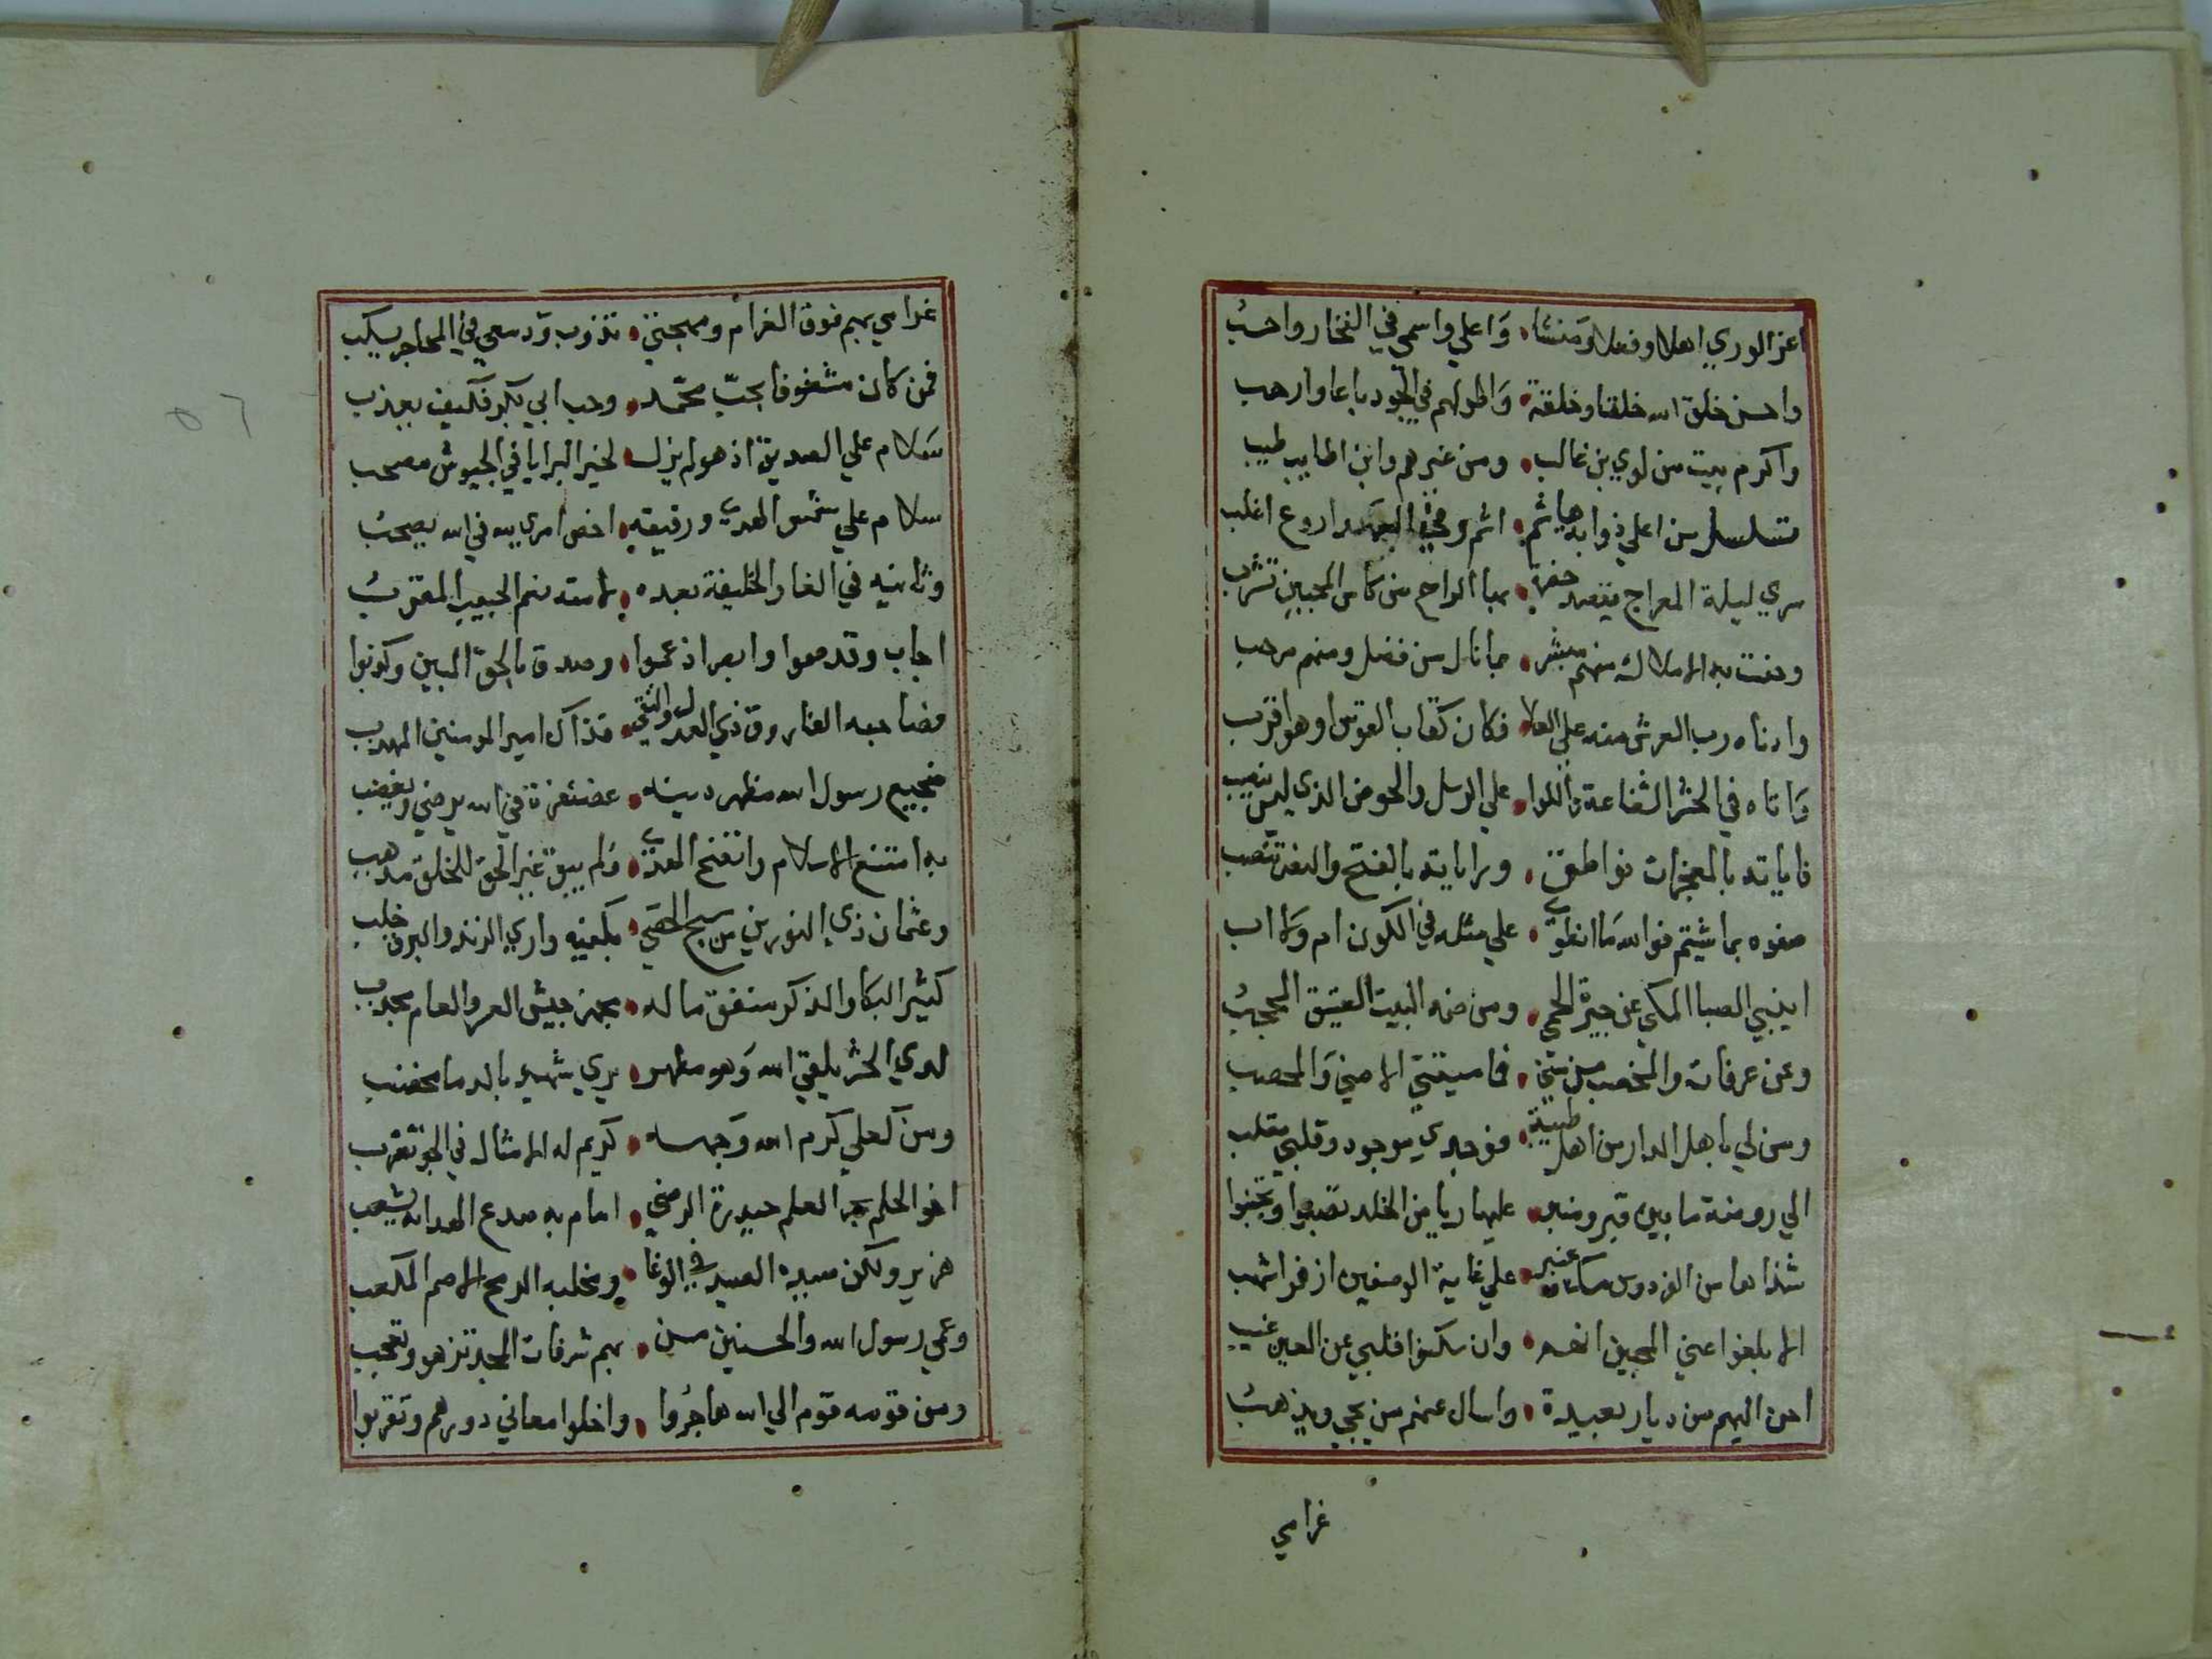 اعز الوري اهلا وفعلا ومنشا وَاعلي واسمي في الفخار واحسبُ
واحسن خلق الله خلقا وخلقة وَاطولهم في الجود باعا وارحب
واكرم بيت من لوي بن غالب ومن غيرهم وابن اطايب طيب
تسلسل من اعلي ذوابه هاشم اشم اروع اغلب
سري ليلة المعراج يقصد حضرة بها الراح من كاس المحبين تشرب
وحفت به الاملاك منهم مبشر بما نال من فضل ومنهم مرحب
وادناه رب العرش منه علي العلا فكان كقاب القوس او هو اقرب
وَاتاه في الحشر الشفاعة واللوا علي الرسل والحوض الذي ليس ينضب
فاياته بالمعجزات نواطق وراياته بالفتح والنصر تنصب
صفوه بما شيتم فوالله مَا انطوي علي مثله في الكون ام وَلا اب
ايذبي الصبا المكي عن جيرة الحمي ومن ضمه البيت العتيق المحجبُ
وعن عرفات والمخصب من مني فما سيقتي الا مني وَالمحصب
ومن لي باهل الدار من اهل طيبة فوجدي موجود وقلبي مقلب
الي روضة ما بين قبر ومنبر عليها رياض الخلد تصبوا وتجنبوا
شذاها من الفردوس مسك وعنبر علي غاية الوصفين اذفر اشهب
الا بلغوا عني المحبين انهم وان سكنوا قلبي عن العين غيب
احن اليهم من ديار بعيدة واسال عنهم من يجي ويذهبُ
غرامي
غرامي بهم فوق الغرام ومهجتي تذوب وَدمعي في المحاجر يسكب
فمن كان مشغوفا بحبّ محمّد وحب ابي بكر فكيف يعذب
سَلام علي الصديق اذ هو لم يزل لخير البرايا في الجيوش مصحب
سلام علي شمس الهدي ورفيقه اخص امري لله في الله يصحبُ
وثانيه في الغار والخليفة بعده لامته نعم الحبيب المقربُ
اجاب وقد صموا وابصر اذ عموا وصدق بالحق المبين وكذبوا
فصاحبه الفاروق ذي العدل والتقي فذاك امير المومنين المهدب
ضجيع رسول الله مظهر دينه غضنفرة في الله يرضي ويغضب
به امتنع الاسلام واتضح الهدي وَلم يبق غير الحق للخلق مدهب
وعثمان ذي النورين من سبح الحصي بكفيه واري الزند والبرق خلب
كثير البكا والذكر منفق ماله يجهز جيش العسر والعام مجدب
لدي الحشر يلقي الله وَهو مطهر بري شهيد بالدما مخضب
ومن كعلي كرم الله وَجهه كريم له الامثال في الجو تضرب
اخو الحلم بحر العلم حيدرة الرضي امام به صدع الهدايه يشعب
هزبر ولكن صيده الصيد في الوغا ومخلبه الرمح الاصم المكعب
وعمي رسول الله والحسنين من بهم شرفات المجد تزهو وتعجب
ومن قومه قوم الي الله هاجرُوا واخلوا معاني دورهم وتغربوا